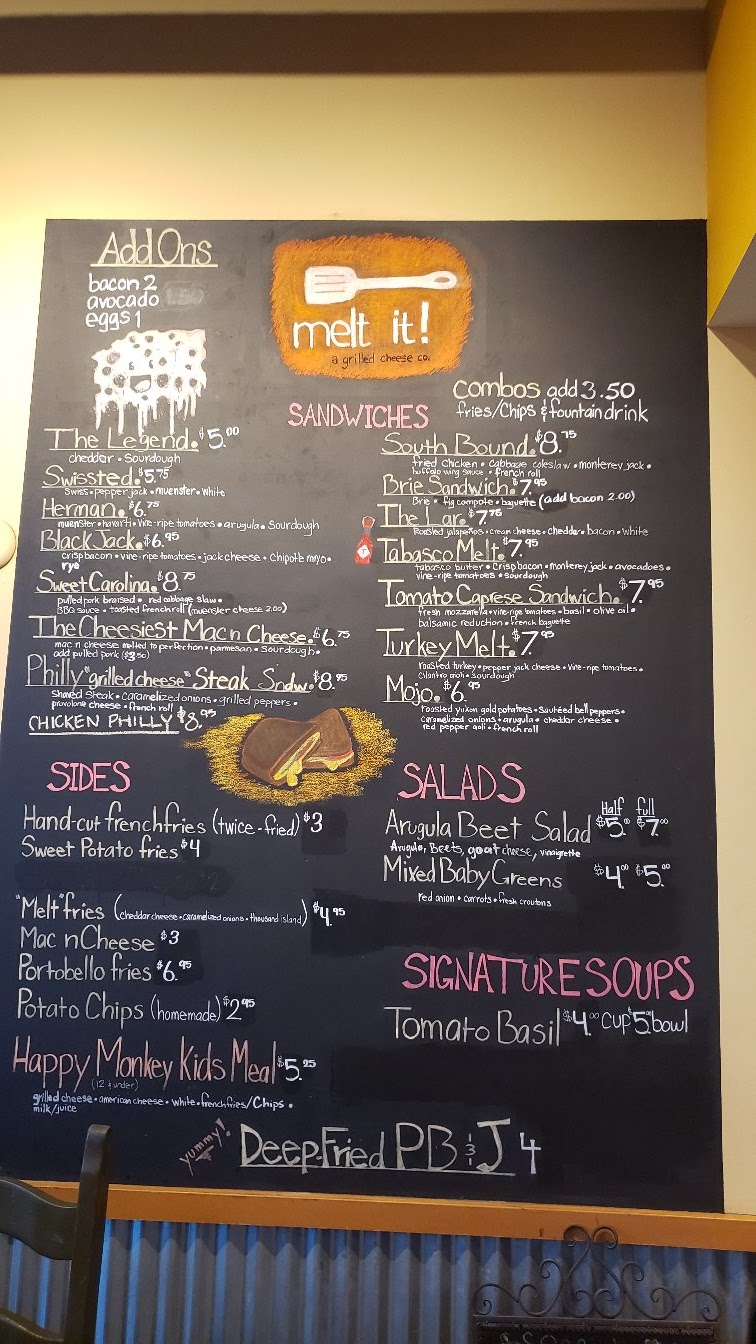 Add Ons
bacon 2
avocado 1.50
eggs 1
melt it!
a grilled cheese co.
combos add 3.50
fries/Chips & fountain drink
SANDWICHES
The Legend. $5.00
cheddar • Sourdough
Swissted. $5.75
Swiss • pepper jack • muenster • white
Herman. $6.75
muenster • havarti • vine-ripe tomatoes • arugula • Sourdough
Black Jack. $6.95
crisp bacon • vine-ripe tomatoes • jack cheese • Chipotle mayo •
rye
Sweet Carolina. $8.75
pulled pork braised • red cabbage slaw •
BBQ sauce • toasted french roll (muenster cheese 2.00)
The Cheesiest Mac n Cheese. $6.75
mac n cheese melted to perfection • parmesan • sourdough •
add pulled pork ($3.50)
Philly "grilled cheese" Steak Sndw. $8.95
Shaved Steak • Caramelized onions • grilled peppers •
provolone cheese • french roll
CHICKEN PHILLY $8.95
South Bound. $8.75
fried Chicken • Cabbage coleslaw • monterey jack •
buffalo wing sauce • french roll
Brie Sandwich. $7.95
Brie • fig compote • baguette (add bacon 2.00)
The Lar. $7.75
Roasted jalapeños • cream cheese • cheddar • bacon • white
Tabasco Melt. $7.95
tabasco butter • Crisp bacon • monterey jack • avocadoes •
vine-ripe tomatoes • sourdough
Tomato Caprese Sandwich. $7.95
fresh mozzarella • vine-ripe tomatoes • basil • olive oil •
balsamic reduction • french baguette
Turkey Melt. $7.95
roasted turkey • pepper jack cheese • vine-ripe tomatoes •
Cilantro aioli • sourdough
Mojo. $6.95
roasted yukon gold potatoes • Sautéed bell peppers •
Caramelized onions • arugula • cheddar cheese •
red pepper aoli • french roll
SIDES
Hand-cut french fries (twice-fried) $3
Sweet Potato fries $4
"Melt" fries (cheddar cheese • caramelized onions • thousand island) $4.95
Mac n Cheese $3
Portobello fries $6.95
Potato Chips (homemade) $2.95
Happy Monkey Kids Meal $5.25
(12 & under)
grilled cheese • american cheese • white • french fries/Chips •
milk/juice
SALADS
Half full
Arugula Beet Salad $5.00 $7.00
Arugula, Beets, goat cheese, vinaigrette
Mixed Baby Greens $4.00 $5.00
red onion • carrots • fresh croutons
SIGNATURE SOUPS
Tomato Basil $4.00 cup $5.00 bowl
yummy! Deep-Fried PB & J 4